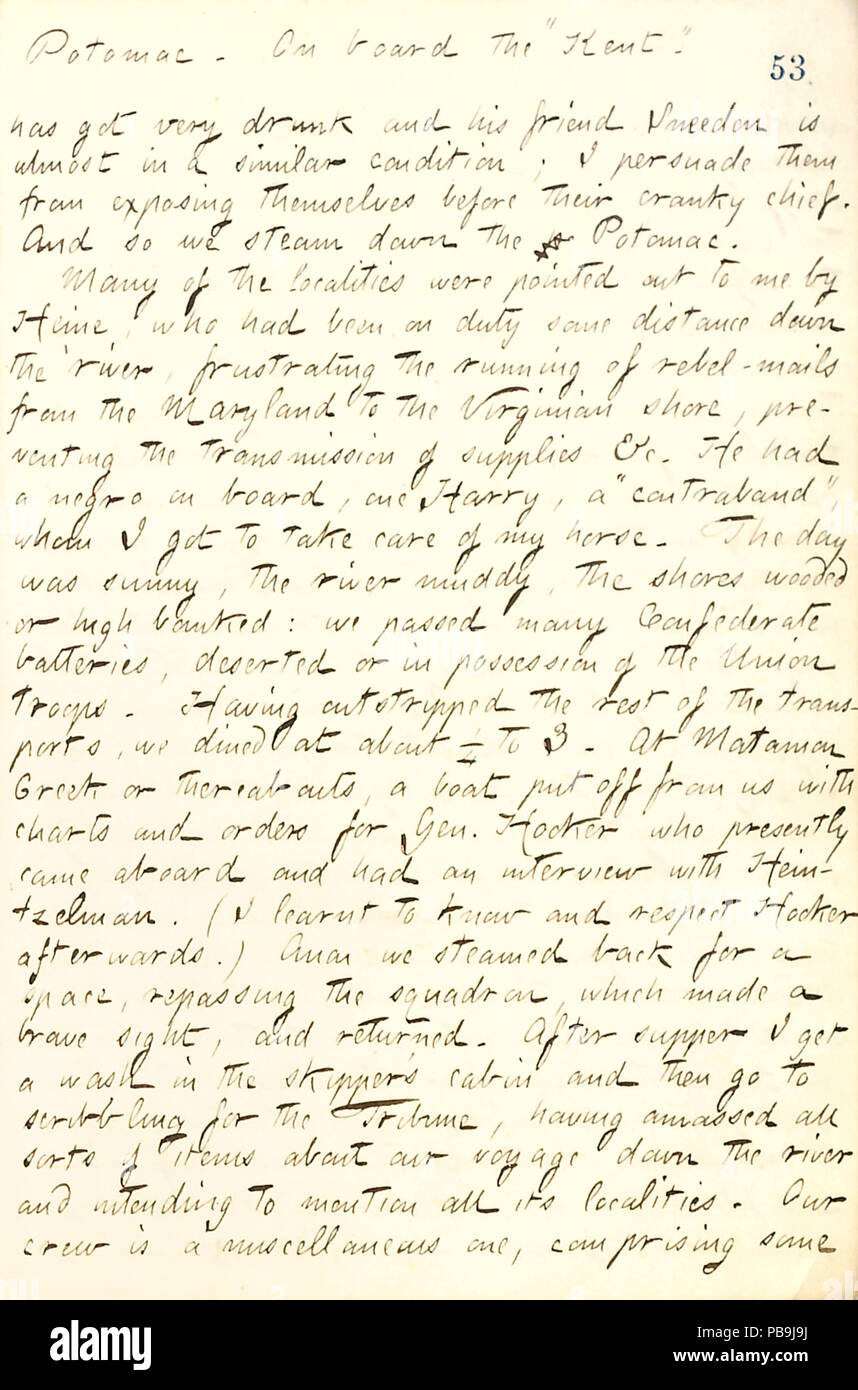 Potomac - On board the "Kent."
53
has got very drunk and his friend Sneedon is
almost in a similar condition; I persuade them
from exposing themselves before their cranky chief.
And so we steam down the Potomac.
Many of the localities were pointed out to me by
Heine, who had been on duty some distance down
the river, frustrating the running of rebel-mails
from the Maryland to the Virginian shore, pre-
venting the transmission of supplies &c. He had
a negro on board, one Harry, a "contraband",
whom I got to take care of my horse. The day
was sunny, the river muddy, the shores wooded
or high banked: we passed many Confederate
batteries, deserted or in possession of the Union
troops. Having outstripped the rest of the trans-
ports, we dined at about ¼ to 3. At Matamon
Creek or thereabouts, a boat put off from us with
charts and orders for Gen. Hooker who presently
came aboard and had an interview with Hein-
tzelman. (I learnt to know and respect Hooker
afterwards.) Anon we steamed back for a
space, repassing the squadron, which made a
brave sight, and returned. After supper I get
a wash in the skipper's cabin and then go to
scribbling for the Tribune, having amassed all
sorts of items about our voyage down the river
and intending to mention all its localities. Our
crew is a miscellaneous one, comprising some
alamy
Image ID: PB9J9J
www.alamy.com